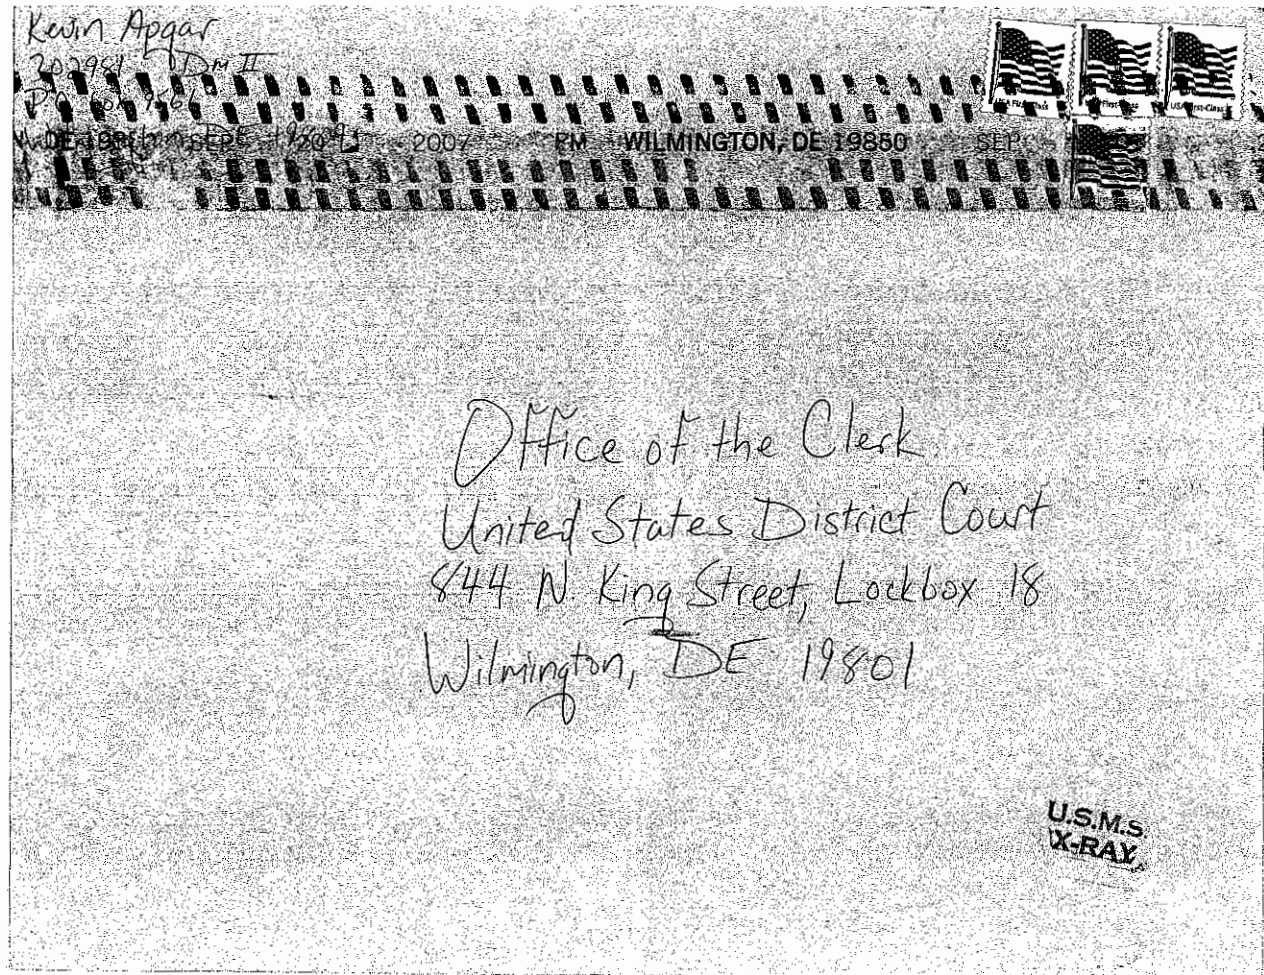 Kevin Apgar
202981 Dm II
P.O. Box 9561
DE 198 SEP 20 2007 PM WILMINGTON, DE 19850 SEP
USA First-Class
First-Class
USA First-Class
Office of the Clerk
United States District Court
844 N. King Street, Lockbox 18
Wilmington, DE 19801
U.S.M.S.
X-RAY